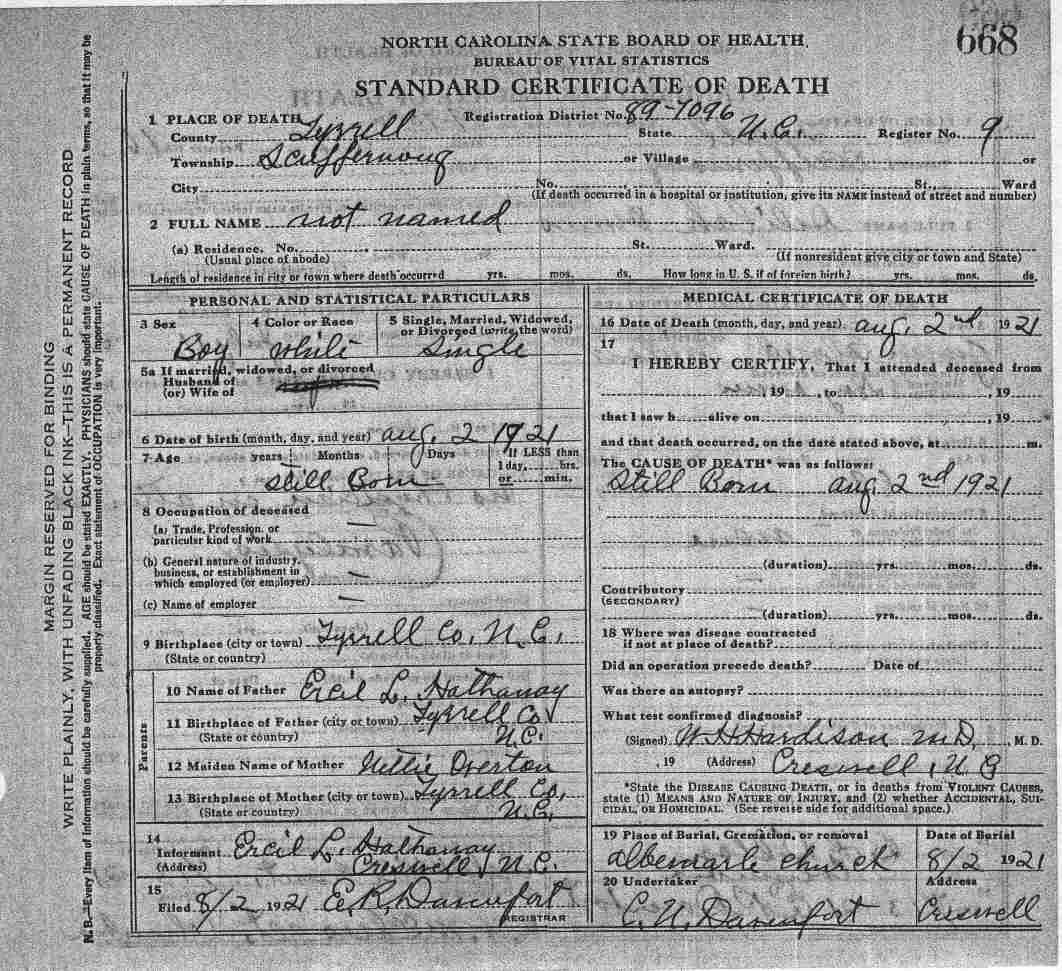 668
NORTH CAROLINA STATE BOARD OF HEALTH
BUREAU OF VITAL STATISTICS
STANDARD CERTIFICATE OF DEATH
1 PLACE OF DEATH Registration District No. 89-7096
County Tyrrell State N.C. Register No. 9
Township Scuppernong or Village or
City No. St., Ward
(If death occurred in a hospital or institution, give its NAME instead of street and number)
2 FULL NAME not named
(a) Residence. No. St. Ward.
(Usual place of abode) (If nonresident give city or town and State)
Length of residence in city or town where death occurred yrs. mos. ds. How long in U. S. if of foreign birth? yrs. mos. ds.
PERSONAL AND STATISTICAL PARTICULARS
3 Sex 4 Color or Race 5 Single, Married, Widowed,
or Divorced (write the word)
Boy white Single
5a If married, widowed, or divorced
Husband of
(or) Wife of
6 Date of birth (month, day, and year) Aug, 2 1921
7 Age years Months Days If LESS than
1 day, hrs.
or min.
Still Born
8 Occupation of deceased
(a) Trade, Profession, or
particular kind of work
(b) General nature of industry,
business, or establishment in
which employed (or employer)
(c) Name of employer
9 Birthplace (city or town) Tyrrell Co, N.C.
(State or country)
Parents
10 Name of Father Ercil L. Hathaway
11 Birthplace of Father (city or town) Tyrrell Co
(State or country) N.C.
12 Maiden Name of Mother Nettie Overton
13 Birthplace of Mother (city or town) Tyrrell Co,
(State or country) N.C.
14
Informant Ercil L. Hathaway
(Address) Creswell, N.C.
15
Filed 8/2 1921 E. R. Davenport
REGISTRAR
MEDICAL CERTIFICATE OF DEATH
16 Date of Death (month, day, and year) Aug, 2nd 1921
17
I HEREBY CERTIFY, That I attended deceased from
, 19 , to , 19
that I saw h alive on , 19
and that death occurred, on the date stated above, at m.
The CAUSE OF DEATH* was as follows:
Still Born Aug, 2nd 1921
(duration) yrs. mos. ds.
Contributory
(SECONDARY)
(duration) yrs. mos. ds.
18 Where was disease contracted
if not at place of death?
Did an operation precede death? Date of
Was there an autopsy?
What test confirmed diagnosis?
(Signed) W H Hardison M.D, , M. D.
, 19 (Address) Creswell, N C
*State the DISEASE CAUSING DEATH, or in deaths from VIOLENT CAUSES,
state (1) MEANS AND NATURE OF INJURY, and (2) whether ACCIDENTAL, SUI-
CIDAL, OR HOMICIDAL. (See reverse side for additional space.)
19 Place of Burial, Cremation, or removal Date of Burial
Albemarle Church 8/2 1921
20 Undertaker Address
C. N. Davenport Creswell
MARGIN RESERVED FOR BINDING
WRITE PLAINLY, WITH UNFADING BLACK INK—THIS IS A PERMANENT RECORD
N. B.—Every item of information should be carefully supplied. AGE should be stated EXACTLY. PHYSICIANS should state CAUSE OF DEATH in plain terms, so that it may be
properly classified. Exact statement of OCCUPATION is very important.